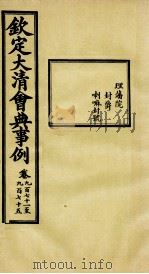 欽定大清會典事例
卷九百七十一至
九百七十五
理藩院
封爵
喇嘛封號